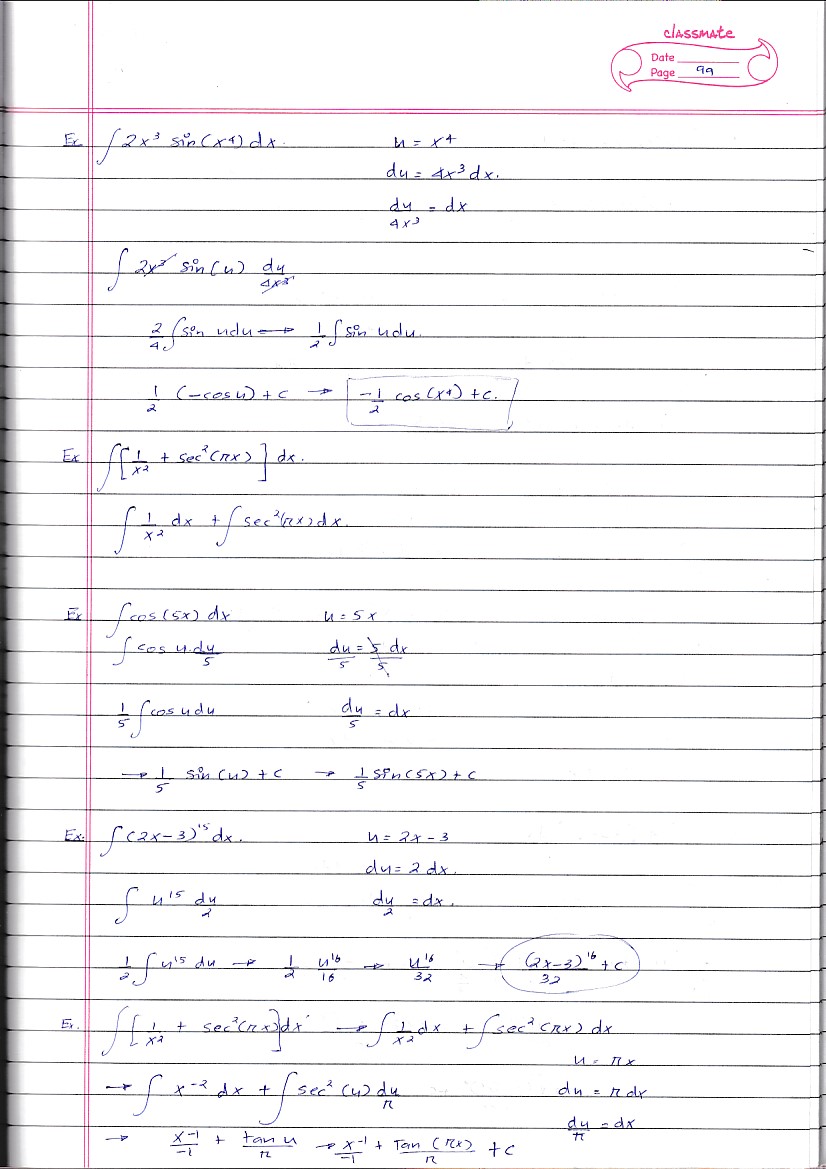 classmate
Date
Page 99
Ex ∫ 2x³ sin(x⁴) dx. u = x⁴
du = 4x³ dx.
du/4x³ = dx
∫ 2x³ sin(u) du/4x³
2/4 ∫ sin u du → 1/2 ∫ sin u du.
1/2 (-cos u) + c → -1/2 cos(x⁴) + c.
Ex ∫ [1/x² + sec²(πx)] dx.
∫ 1/x² dx + ∫ sec²(πx) dx.
Ex ∫ cos(5x) dx u = 5x
∫ cos u · du/5 du/5 = 5/5 dx
1/5 ∫ cos u du du/5 = dx
→ 1/5 sin(u) + c → 1/5 sin(5x) + c
Ex. ∫ (2x-3)¹⁵ dx. u = 2x-3
du = 2 dx.
∫ u¹⁵ du/2 du/2 = dx.
1/2 ∫ u¹⁵ du → 1/2 u¹⁶/16 → u¹⁶/32 → (2x-3)¹⁶/32 + c
Ex. ∫ [1/x² + sec²(πx)] dx → ∫ 1/x² dx + ∫ sec²(πx) dx
u = πx
→ ∫ x⁻² dx + ∫ sec²(u) du/π du = π dx
du/π = dx
→ x⁻¹/-1 + tan u/π → x⁻¹/-1 + Tan(πx)/π + c